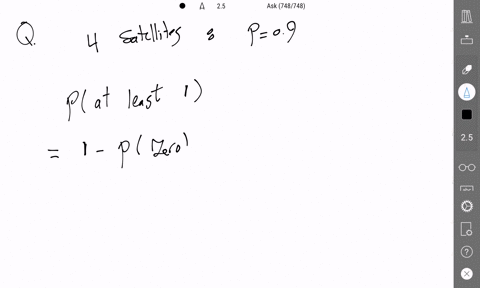 2.5 Ask (748/748)
Q. 4 Satellites : P=0.9
P(at least 1)
= 1 - P(Zero)
2.5